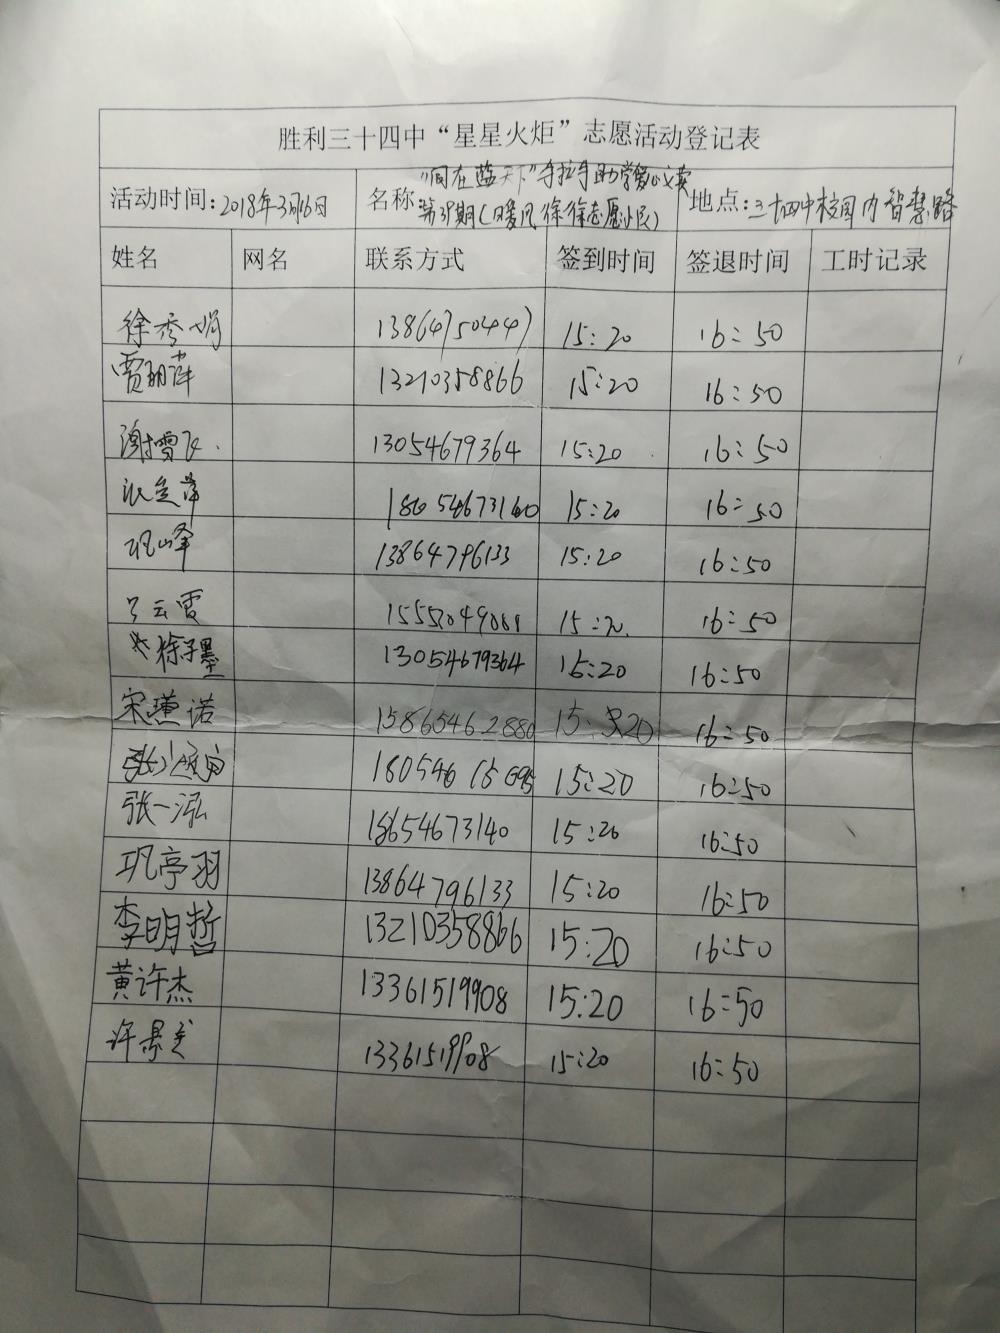 胜利三十四中“星星火炬”志愿活动登记表
活动时间:2018年3月16日 名称:"同在蓝天下"手拉手助学爱心义卖 第39期(暖风徐徐志愿小民) 地点:三十四中校园内智慧路
姓名 网名 联系方式 签到时间 签退时间 工时记录
徐秀娟 13864750447 15:20 16:50
贾丽萍 13210358866 15:20 16:50
谢雪飞 13054679364 15:20 16:50
18654673140 15:20 16:50
巩峰 13864796133 15:20 16:50
云霞 15:20 16:50
徐子墨 13054679364 15:20 16:50
宋瑾诺 15865462880 15:20 16:50
15:20 16:50
张一泓 18654673140 15:20 16:50
巩亭羽 13864796133 15:20 16:50
李明哲 13210358866 15:20 16:50
黄许杰 13361519908 15:20 16:50
许 13361519908 15:20 16:50